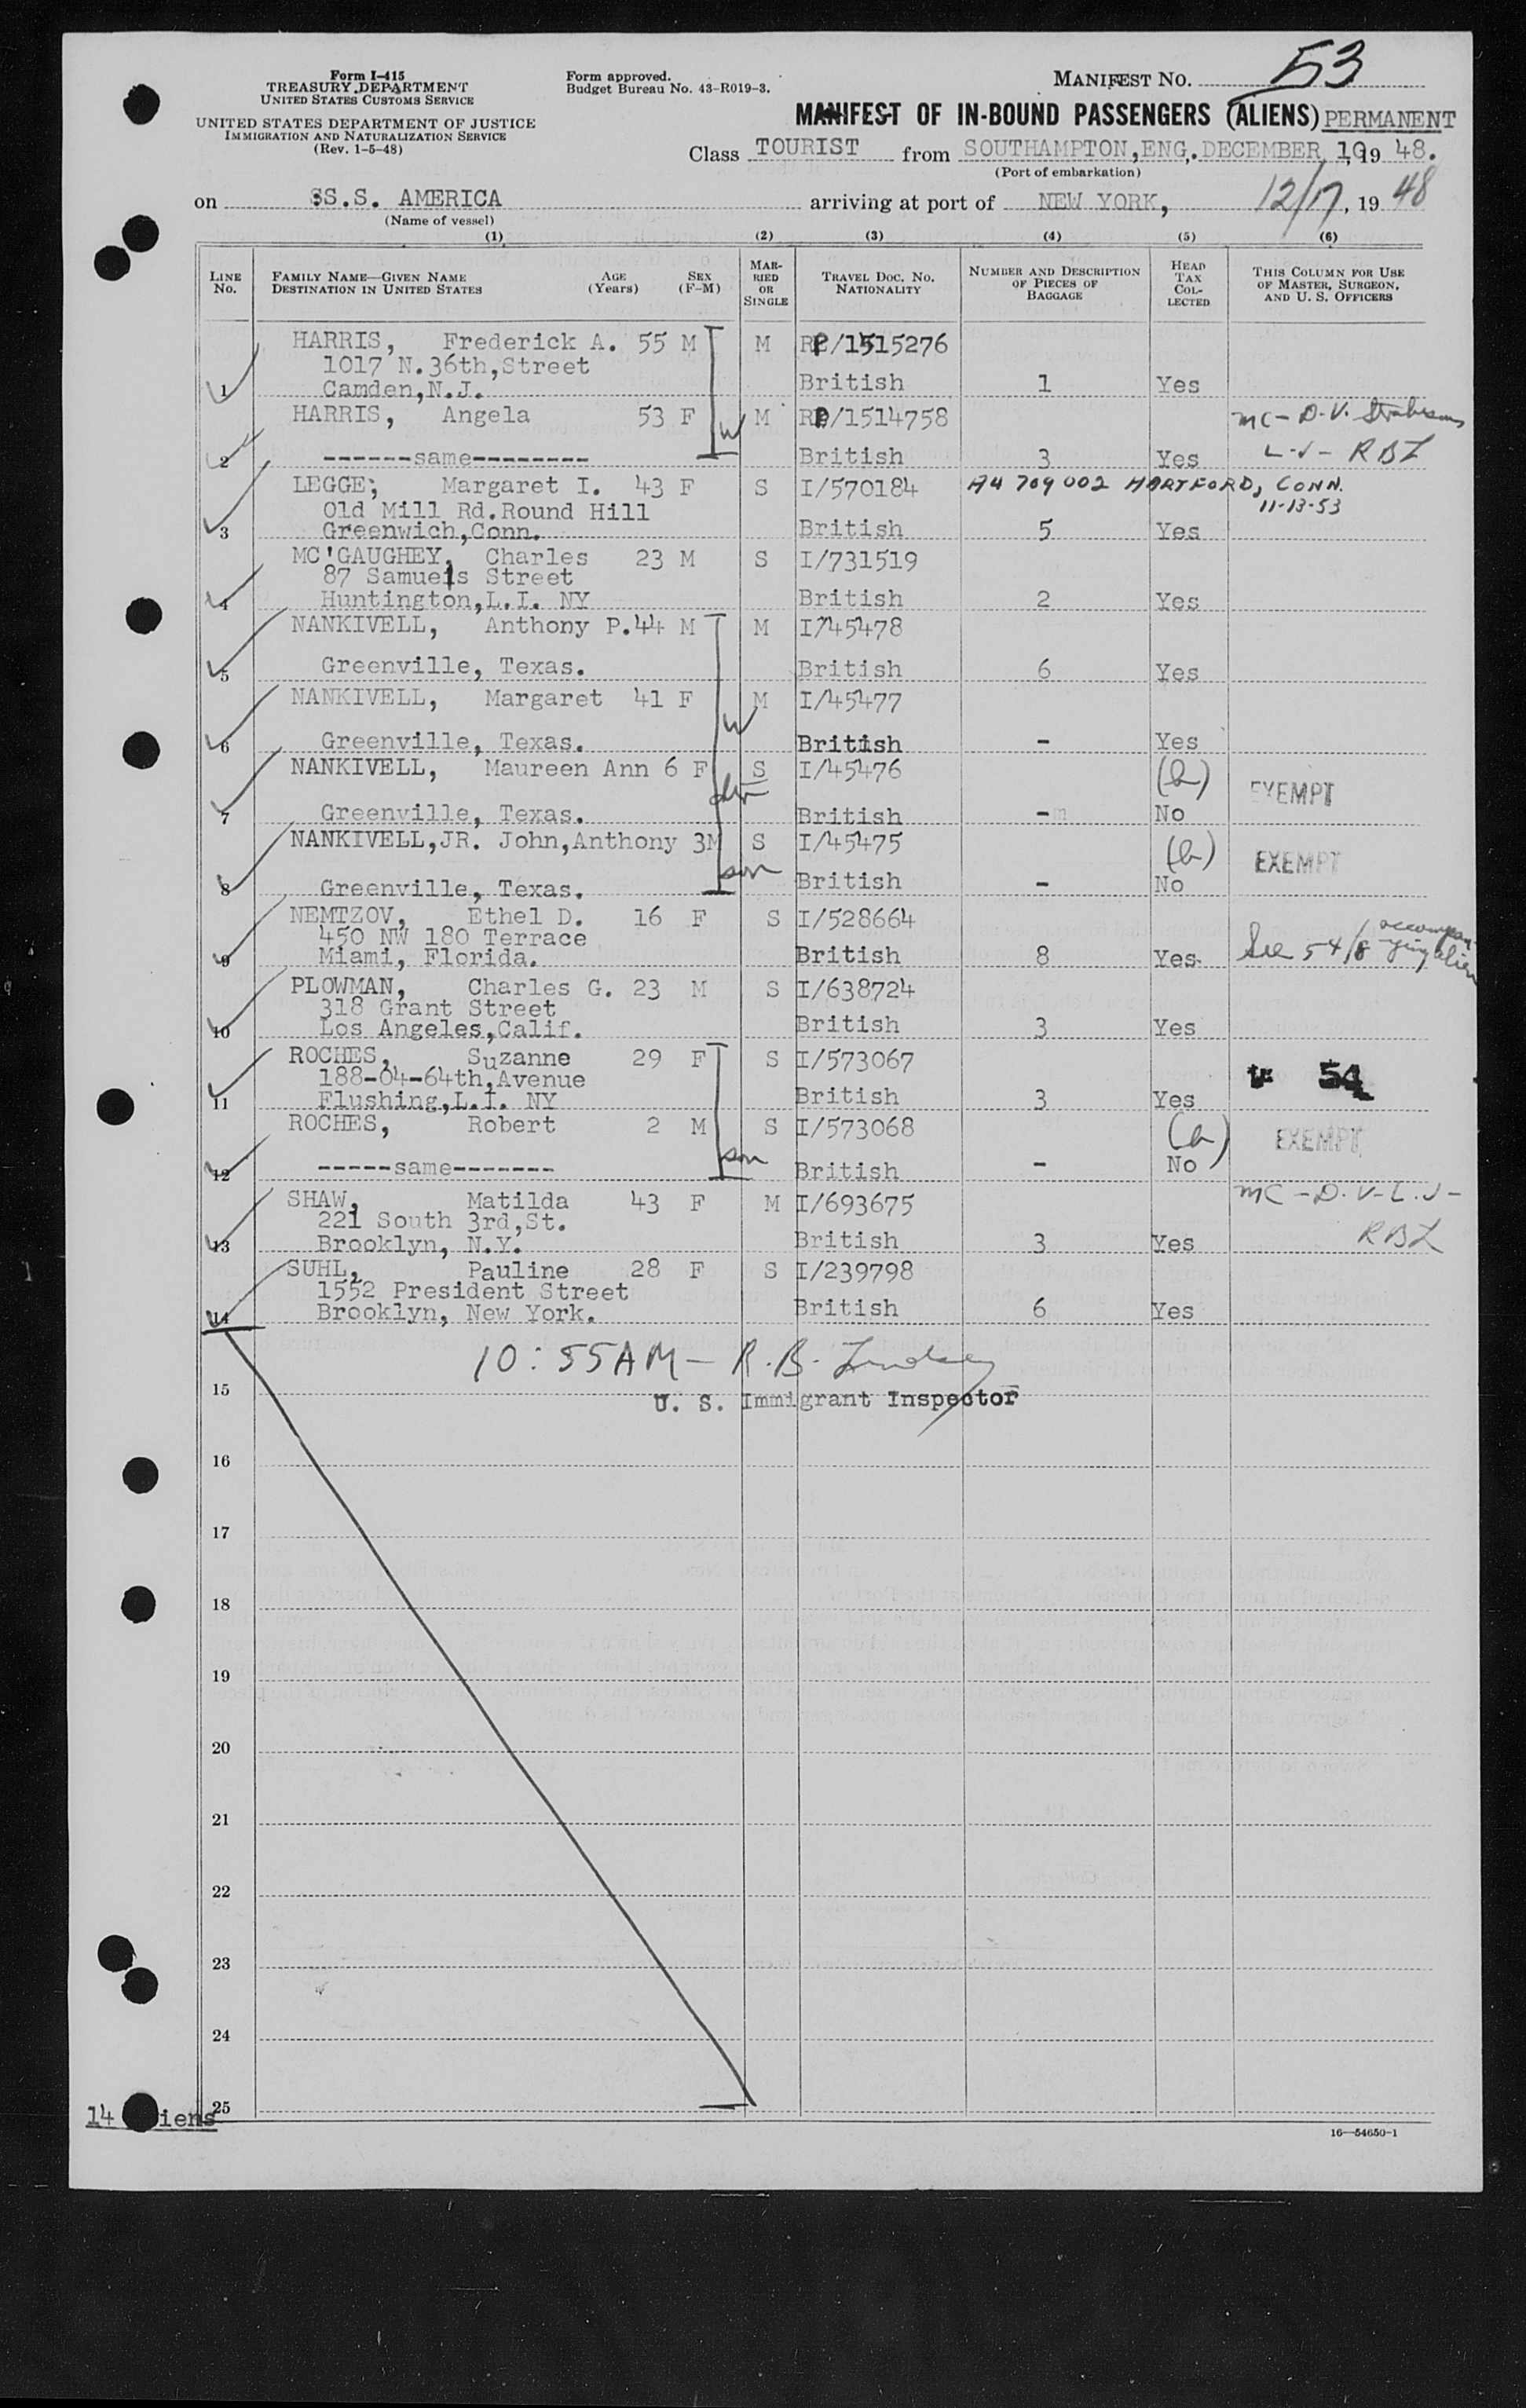 Form I-415
TREASURY DEPARTMENT
UNITED STATES CUSTOMS SERVICE
UNITED STATES DEPARTMENT OF JUSTICE
IMMIGRATION AND NATURALIZATION SERVICE
(Rev. 1-5-48)
Form approved.
Budget Bureau No. 43-R019-3.
MANIFEST NO. 53
MANIFEST OF IN-BOUND PASSENGERS (ALIENS) PERMANENT
Class TOURIST from SOUTHAMPTON,ENG. DECEMBER 10, 19 48.
(Port of embarkation)
on SS.S. AMERICA arriving at port of NEW YORK, 12/17, 19 48
(Name of vessel)
(1) (2) (3) (4) (5) (6)
LINE NO. FAMILY NAME—GIVEN NAME DESTINATION IN UNITED STATES AGE (Years) SEX (F-M) MARRIED OR SINGLE TRAVEL DOC. NO. NATIONALITY NUMBER AND DESCRIPTION OF PIECES OF BAGGAGE HEAD TAX COLLECTED THIS COLUMN FOR USE OF MASTER, SURGEON, AND U. S. OFFICERS
HARRIS, Frederick A. 55 M M RP/1515276
1017 N.36th,Street
1 Camden,N.J. British 1 Yes
HARRIS, Angela 53 F W M RP/1514758 MC - D.V.
2 ------same-------- British 3 Yes L.J - RBL
LEGGE, Margaret I. 43 F S I/570184 A4 709 002 HARTFORD, CONN.
Old Mill Rd.Round Hill 11-13-53
3 Greenwich,Conn. British 5 Yes
MC'GAUGHEY, Charles 23 M S I/731519
87 Samuels Street
4 Huntington,L.I. NY British 2 Yes
NANKIVELL, Anthony P.44 M M I/45478
5 Greenville, Texas. British 6 Yes
NANKIVELL, Margaret 41 F W M I/45477
6 Greenville, Texas. British - Yes
NANKIVELL, Maureen Ann 6 F S I/45476 (b) EXEMPT
7 Greenville, Texas. British - No
NANKIVELL,JR. John,Anthony 3M son S I/45475 (b) EXEMPT
8 Greenville, Texas. British - No
NEMTZOV, Ethel D. 16 F S I/528664
450 NW 180 Terrace See 54/8 accompanying alien
9 Miami, Florida. British 8 Yes
PLOWMAN, Charles G. 23 M S I/638724
318 Grant Street
10 Los Angeles,Calif. British 3 Yes
ROCHES, Suzanne 29 F S I/573067
188-04-64th,Avenue 54
11 Flushing,L.I. NY British 3 Yes
ROCHES, Robert 2 M son S I/573068 (b) EXEMPT
12 -----same------- British - No
SHAW, Matilda 43 F M I/693675 MC - D.V - L.J -
221 South 3rd,St. RBL
13 Brooklyn, N.Y. British 3 Yes
SUHL, Pauline 28 F S I/239798
1552 President Street
14 Brooklyn, New York. British 6 Yes
10:55AM - R.B. Lindsey
15 U. S. Immigrant Inspector
16
17
18
19
20
21
22
23
24
25
14 iens
16—54650-1